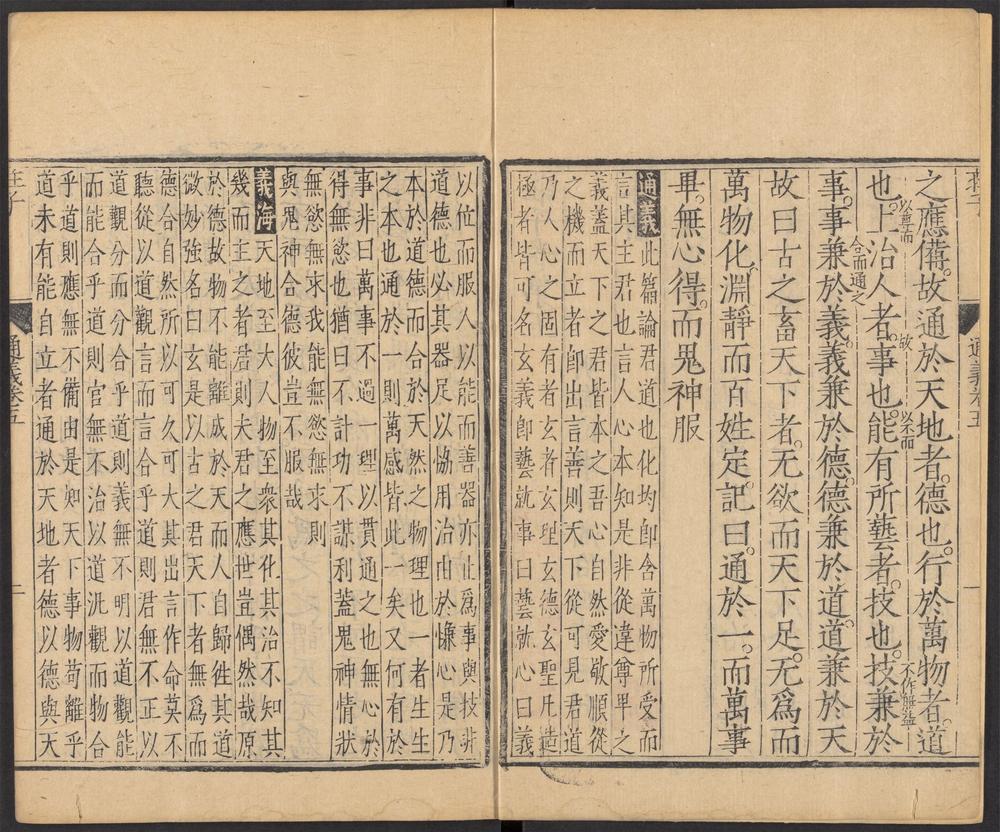 之應備故通於天地者德也行於萬物者道
以重而
也上治人者事也能有所藝者技也技兼於
故
以不而
不作無字
事事兼於義義兼於德德兼於道道兼於天
合而通之
故曰古之畜天下者无欲而天下足无爲而
萬物化淵靜而百姓定記曰通於一而萬事
畢無心得而鬼神服
通義此篇論君道也化均卽含萬物所受而
言其主君也言人心本知是非從違尊卑之
義蓋天下之君皆本之吾心自然愛敬順從
之機而立者卽出言善則天下從可見君道
乃人心之固有者玄者玄理玄德玄聖凡造
極者皆可名玄義卽藝就事曰藝就心曰義
通義卷五
以位而服人以能而善器亦止爲事與技非
道德也必其器足以恊用治由於慊心是乃
本於道德而合於天然之物理也一者生生
之本也通於一則萬感皆此一矣又何有於
事非曰萬事不過一理以貫通之也無心於
得無慾也猶曰不計功不謀利蓋鬼神情狀
無慾無求我能無慾無求則
與鬼神合德彼豈不服哉
義海天地至大人物至衆其化其治不知其
幾而主之者君則夫君之應世豈偶然哉原
於德故物不能離成於天而人自歸徃其道
微妙強名曰玄是以古之君天下者無爲而
德合自然所以可久可大其出言作命莫不
聽從以道觀言而言合乎道則君無不正以
道觀分而分合乎道則義無不明以道觀能
而能合乎道則官無不治以道汎觀而物合
乎道則應無不備由是知天下事物苟離乎
道未有能自立者通於天地者德以德與天
莊子
通義卷五
二